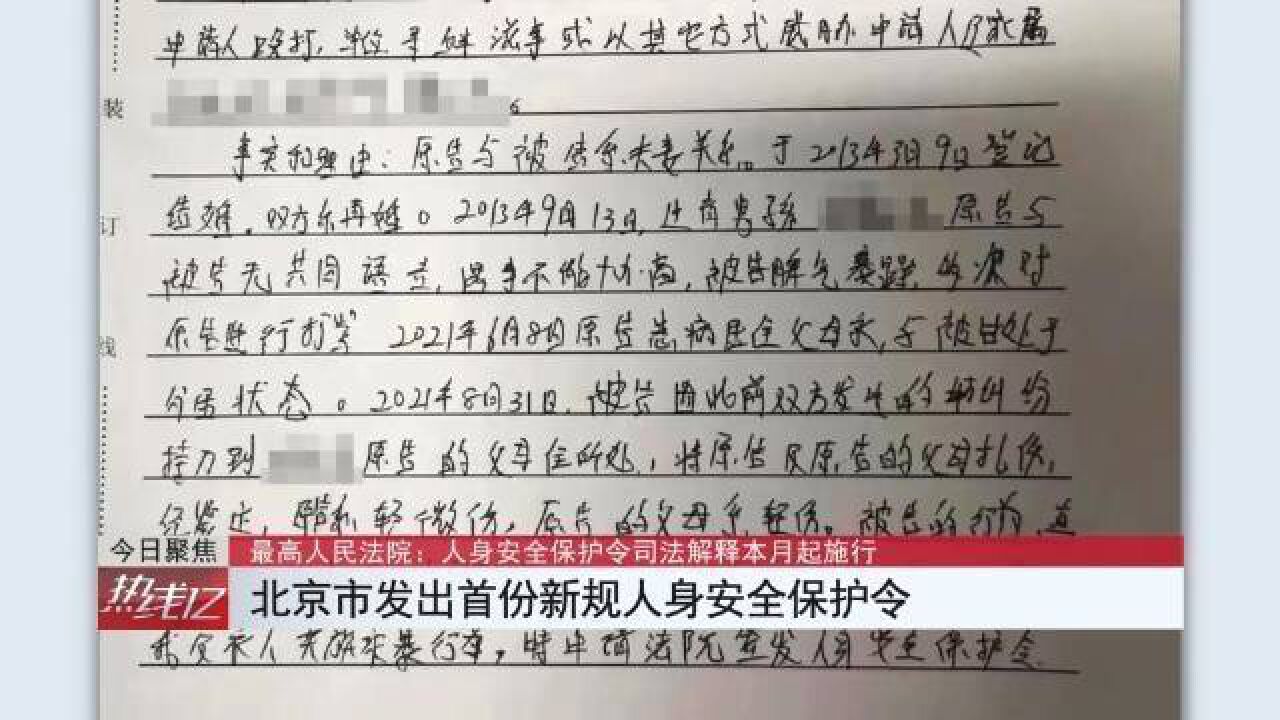 申请人殴打,
寻衅滋事或以其他方式威胁申请人及家属
装
事实和理由:原告与被告系夫妻关系。于2013年3月9日登记
订
结婚,双方系再婚。2013年9月13日,过育男孩 原告与
被告无共同语言,遇事不能协商,被告脾气暴躁,多次对
原告进行打骂 2021年6月8日原告患病居住父母家,与被告处于
线
分居状态。2021年8月31日,被告因此前双方发生的纠纷
持刀到 原告的父母住所处,将原告及原告的父母扎伤,
经鉴定,原告系轻微伤,原告的父母系轻伤。被告的行为
今日聚焦
最高人民法院:人身安全保护令司法解释本月起施行
热线亿
北京市发出首份新规人身安全保护令
我及家人实施家暴行为,特申请法院签发人身安全保护令